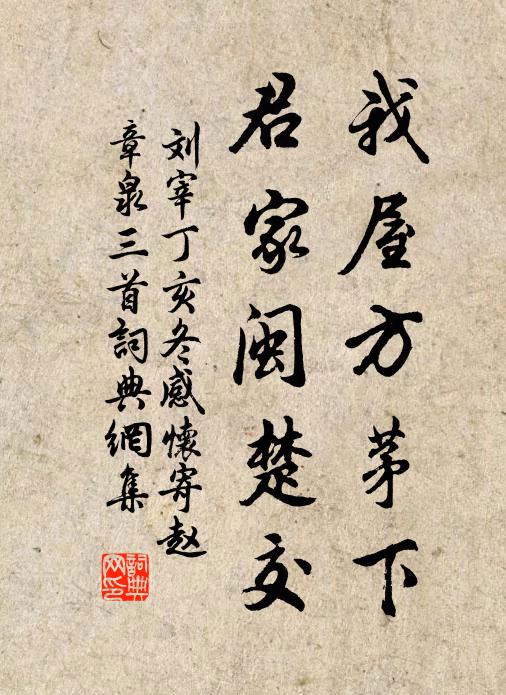 我屋方茅下
君家闽楚交
刘宰丁亥冬感懷寄赵
章泉三首詞典網集
詞典
网印